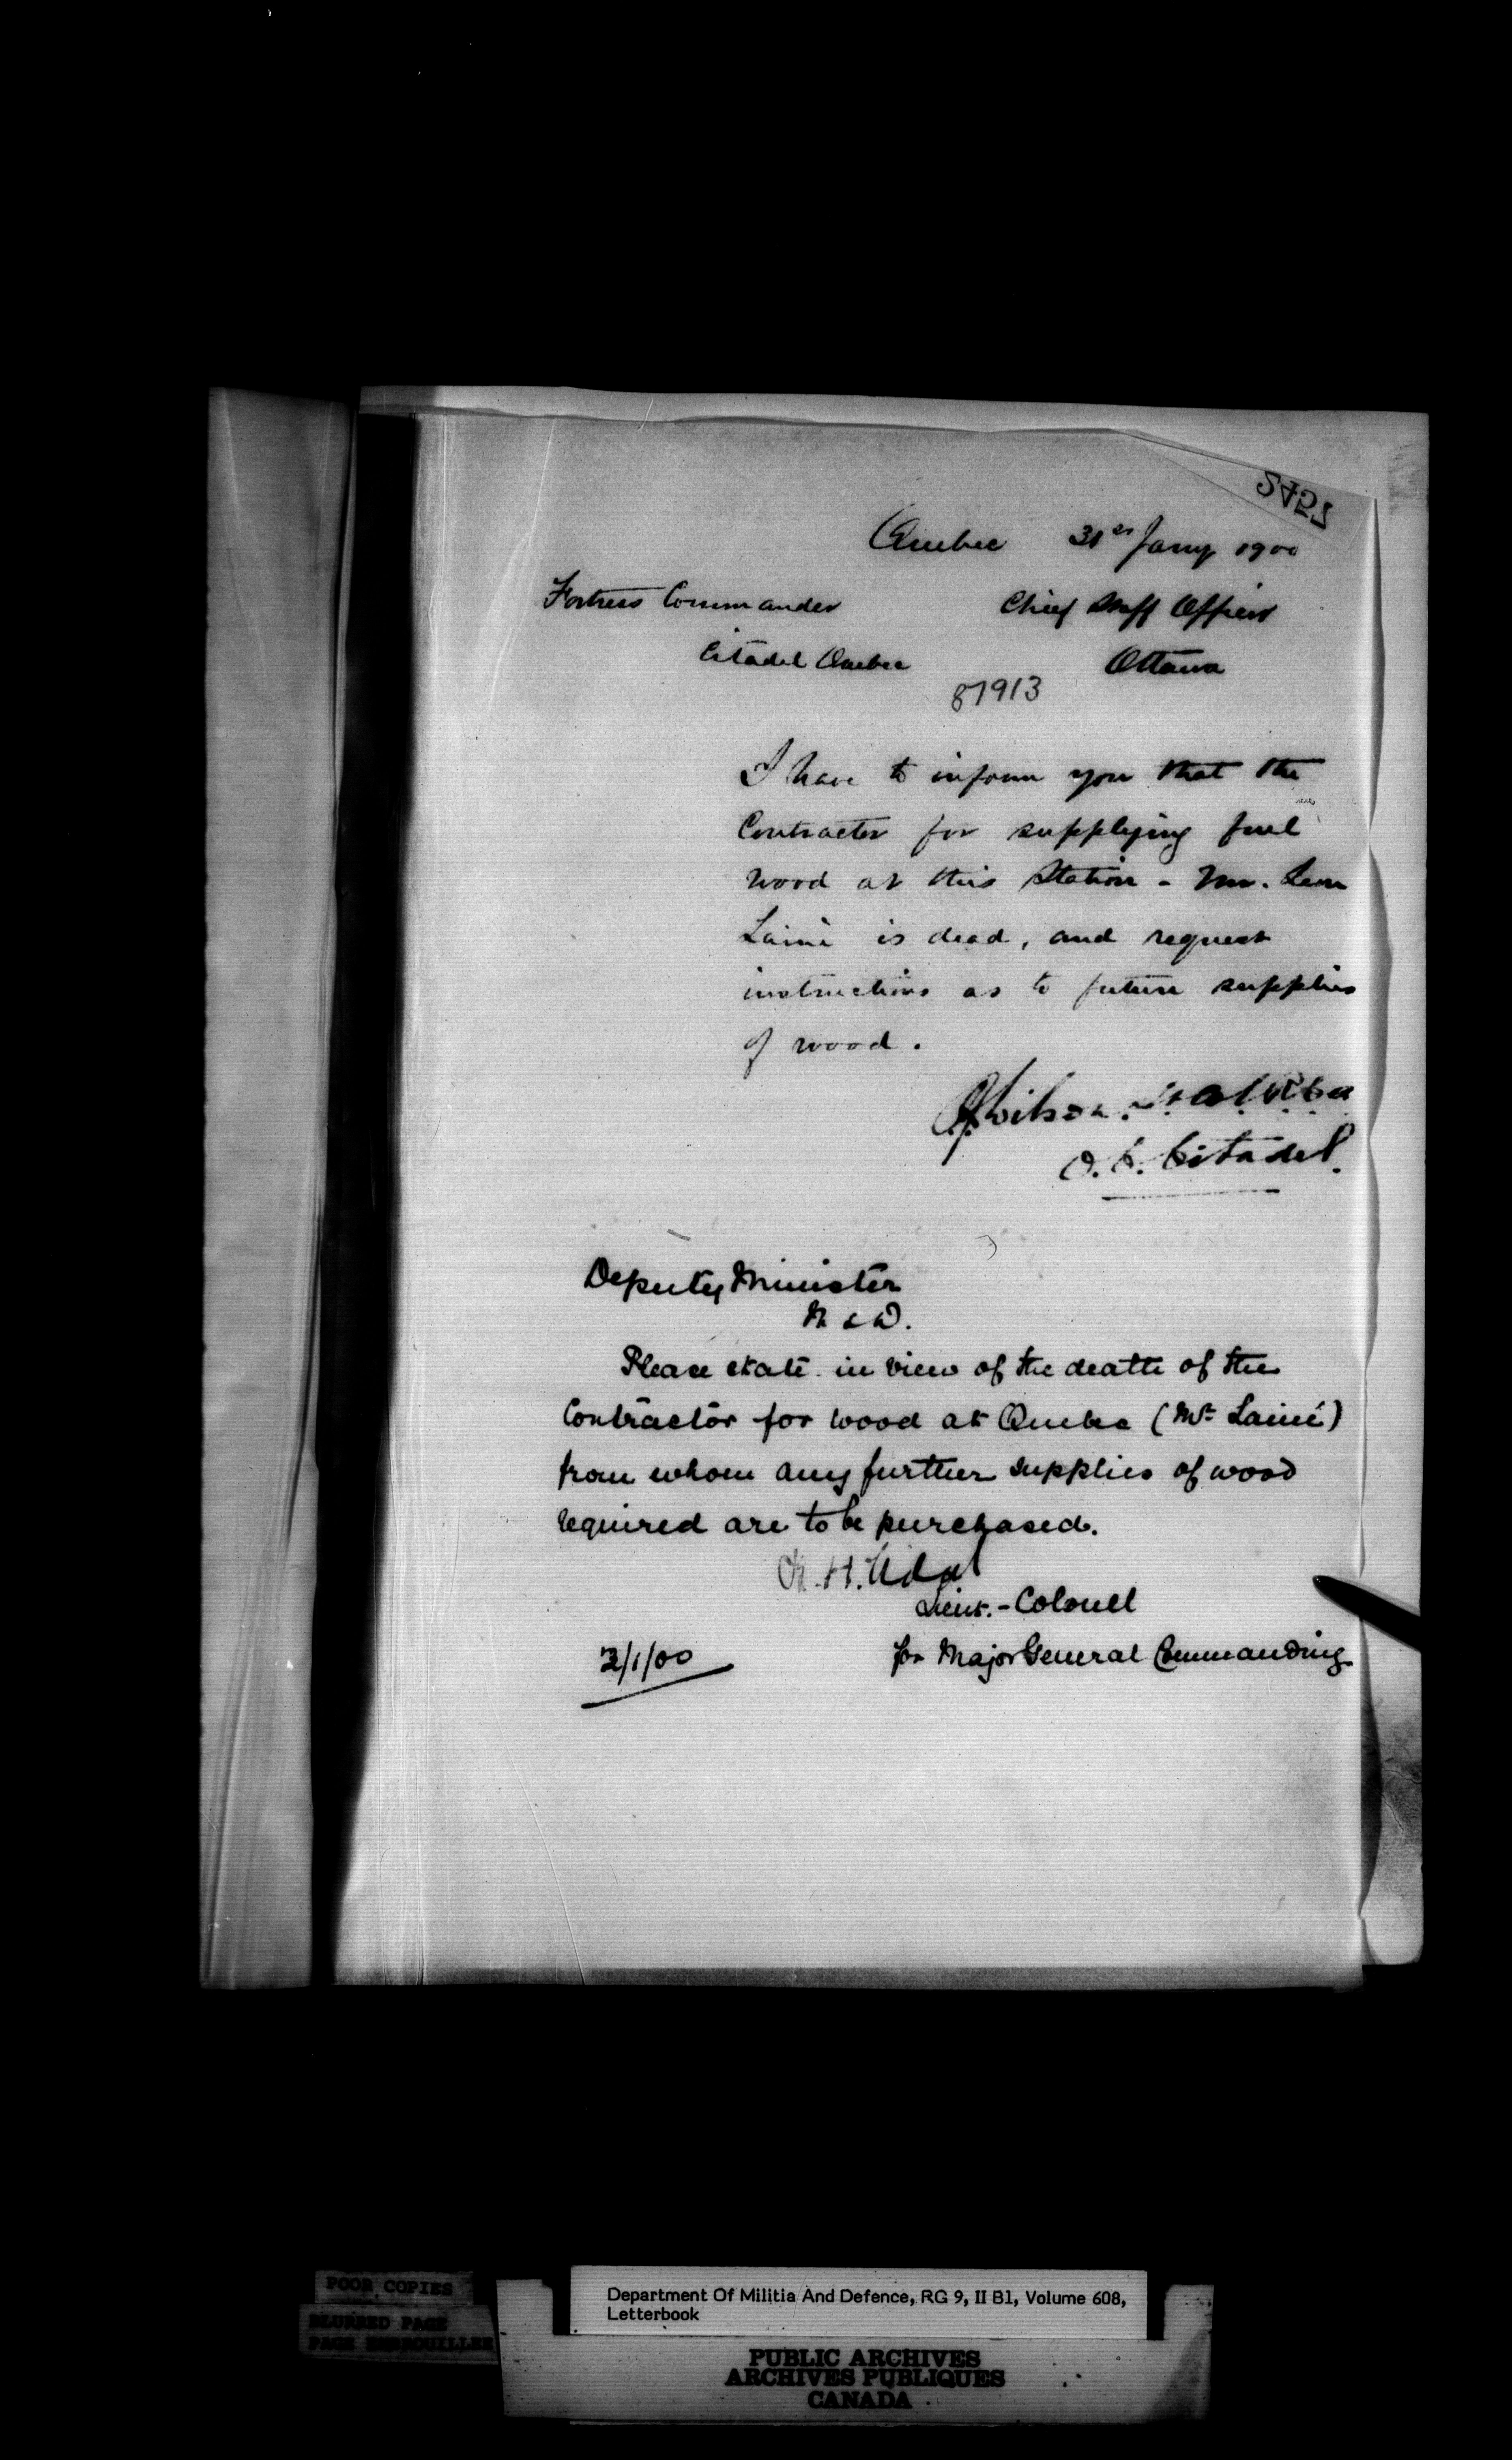 Quebec 31st Jany 1900
Fortress Commander
Citadel Quebec
Chief Staff Officer
Ottawa
87913
I have to inform you that the
Contractor for supplying fuel
wood at this Station - Mr. Leon
Lainé is dead, and request
instructions as to future supplies
of wood.
Wilson
O. C. Citadel.
Deputy Minister
M & D.
Please state in view of the death of the
Contractor for wood at Quebec (Mr Lainé)
from whom any further supplies of wood
required are to be purchased.
H.
Lieut.-Colonel
for Major General Commanding
/1/00
POOR COPIES
BLURRED PAGE
PAGE EMBROUILLEE
Department Of Militia And Defence, RG 9, II B1, Volume 608,
Letterbook
PUBLIC ARCHIVES
ARCHIVES PUBLIQUES
CANADA